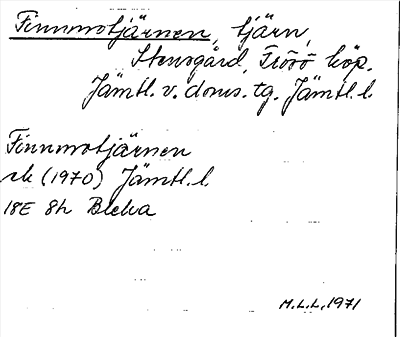 Finnmotjärnen, tjärn,
Stensgård, Frösö köp.
Jämtl. v. doms. tg. Jämtl. l.
Finnmotjärnen
rk (1970) Jämtl. l.
18E 8h Bleka
M.L.L, 1971